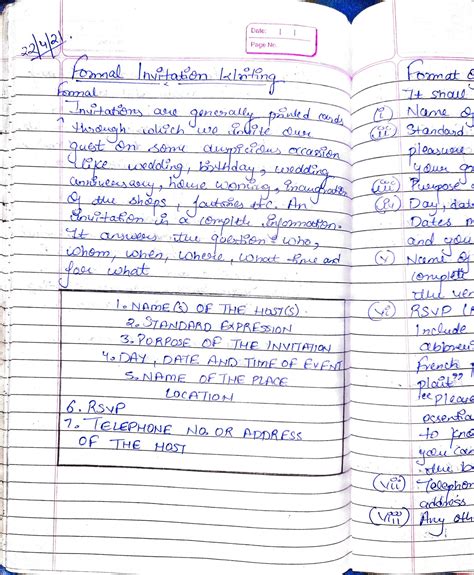 Date: | |
Page No.
22/4/21.
Formal Invitation Writing
Formal
Invitations are generally printed cards
through which we invite our
guest on some auspicious occasion
like wedding, birthday, wedding
anniversary, house warming, inauguration
of the shops, factories etc. An
invitation is a complete information.
It answers the question who,
whom, when, where, what time and
for what
1. NAME(S) OF THE HOST(S)
2. STANDARD EXPRESSION
3. PORPOSE OF THE INVITATION
4. DAY, DATE AND TIME OF EVENT
5. NAME OF THE PLACE
LOCATION
6. RSVP
7. TELEPHONE NO. OR ADDRESS
OF THE HOST
Format
It shall
(i) Name of
(ii) Standard
pleasure
your
(iii) Purpose
(iv) Day, dat
Dates
and you
(v) Name of
complete
the ven
(vi) RSVP (
Include
abbrevi
French
plait"
"Please
essentia
to kno
you can
the
(vii) Telephon
address
(viii) Any oth